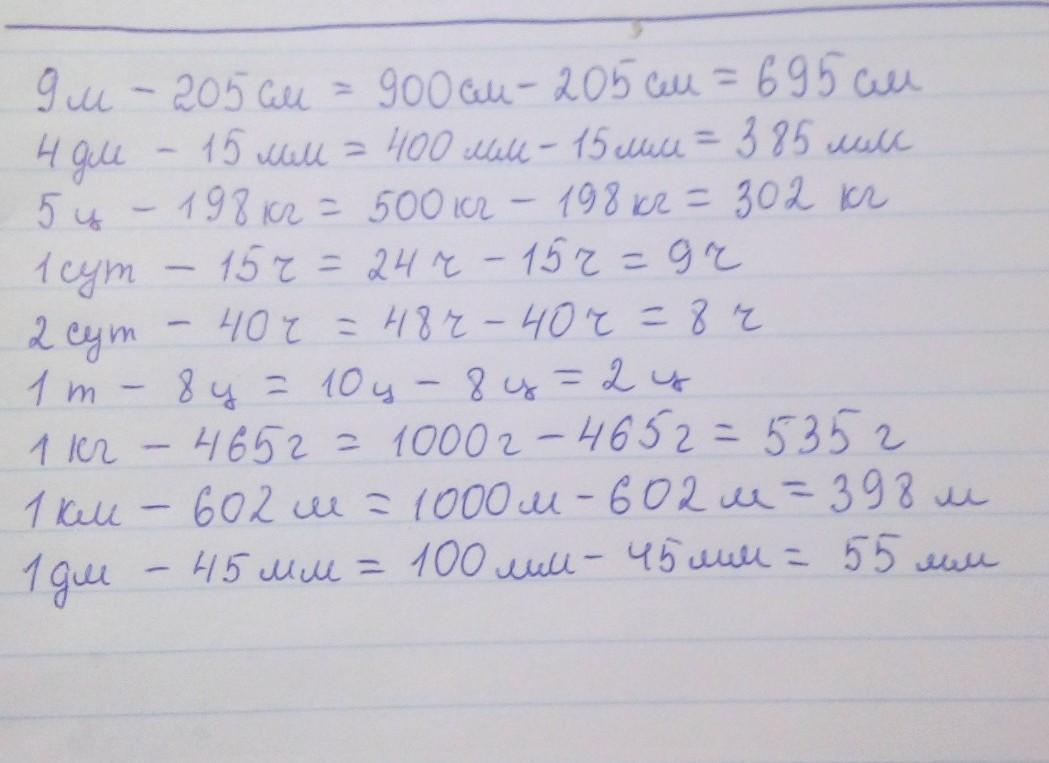 9м - 205см = 900см - 205см = 695см
4дм - 15мм = 400мм - 15мм = 385мм
5ц - 198кг = 500кг - 198кг = 302 кг
1сут - 15ч = 24ч - 15ч = 9ч
2сут - 40ч = 48ч - 40ч = 8ч
1т - 8ц = 10ц - 8ц = 2ц
1кг - 465г = 1000г - 465г = 535г
1км - 602м = 1000м - 602м = 398м
1дм - 45мм = 100мм - 45мм = 55мм